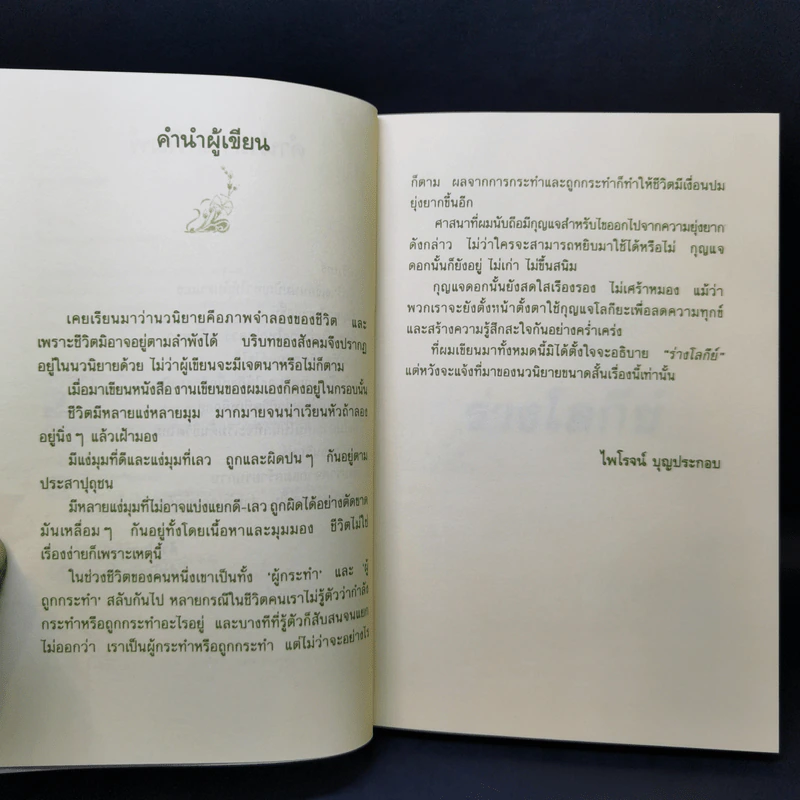 คำนำผู้เขียน
เคยเรียนมาว่านวนิยายคือภาพจำลองของชีวิต และ
เพราะชีวิตมิอาจอยู่ตามลำพังได้ บริบทของสังคมจึงปรากฏ
อยู่ในนวนิยายด้วย ไม่ว่าผู้เขียนจะมีเจตนาหรือไม่ก็ตาม
เมื่อมาเขียนหนังสือ งานเขียนของผมเองก็คงอยู่ในกรอบนั้น
ชีวิตมีหลายแง่หลายมุม มากมายจนน่าเวียนหัวถ้าลอง
อยู่นิ่งๆ แล้วเฝ้ามอง
มีแง่มุมที่ดีและแง่มุมที่เลว ถูกและผิดปนๆ กันอยู่ตาม
ประสาปุถุชน
มีหลายแง่มุมที่ไม่อาจแบ่งแยกดี-เลว ถูกผิดได้อย่างตัดขาด
มันเหลื่อมๆ กันอยู่ทั้งโดยเนื้อหาและมุมมอง ชีวิตไม่ใช่
เรื่องง่ายก็เพราะเหตุนี้
ในช่วงชีวิตของคนหนึ่งเขาเป็นทั้ง 'ผู้กระทำ' และ 'ผู้
ถูกกระทำ' สลับกันไป หลายกรณีในชีวิตคนเราไม่รู้ตัวว่ากำลัง
กระทำหรือถูกกระทำอะไรอยู่ และบางทีที่รู้ตัวก็สับสนจนแยก
ไม่ออกว่า เราเป็นผู้กระทำหรือถูกกระทำ แต่ไม่ว่าจะอย่างไร
ก็ตาม ผลจากการกระทำและถูกกระทำก็ทำให้ชีวิตมีเงื่อนปม
ยุ่งยากขึ้นอีก
ศาสนาที่ผมนับถือมีกุญแจสำหรับไขออกไปจากความยุ่งยาก
ดังกล่าว ไม่ว่าใครจะสามารถหยิบมาใช้ได้หรือไม่ กุญแจ
ดอกนั้นก็ยังอยู่ ไม่เก่า ไม่ขึ้นสนิม
กุญแจดอกนั้นยังสดใสเรืองรอง ไม่เศร้าหมอง แม้ว่า
พวกเราจะยังตั้งหน้าตั้งตาใช้กุญแจโลกียะเพื่อลดความทุกข์
และสร้างความรู้สึกสะใจกันอย่างคร่ำเคร่ง
ที่ผมเขียนมาทั้งหมดนี้มิได้ตั้งใจจะอธิบาย "ร่างโลกีย์"
แต่หวังจะแจ้งที่มาของนวนิยายขนาดสั้นเรื่องนี้เท่านั้น
ไพโรจน์ บุญประกอบ